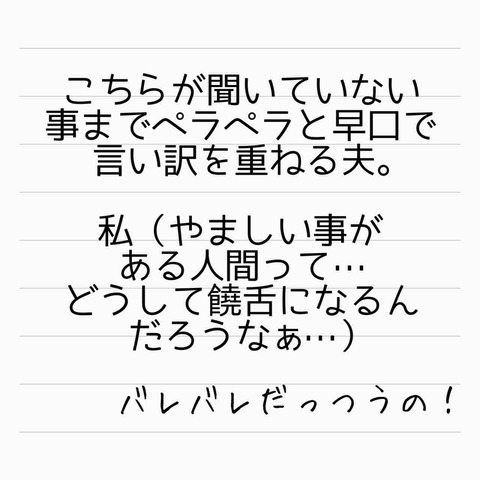 こちらが聞いていない
事までペラペラと早口で
言い訳を重ねる夫。
私（やましい事が
ある人間って…
どうして饒舌になるん
だろうなぁ…）
バレバレだっつうの！